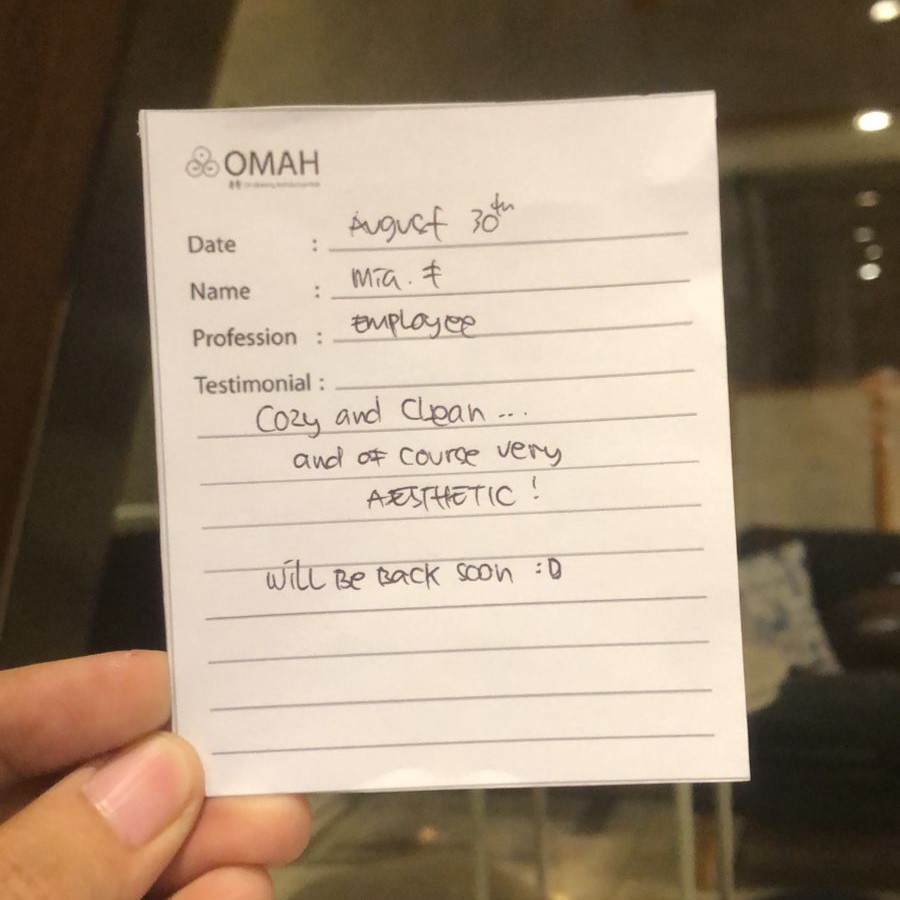 OMAH
Date : August 30th
Name : Mia. F
Profession : Employee
Testimonial :
Cozy and Clean ...
and of course very
AESTHETIC !
will Be Back soon :D